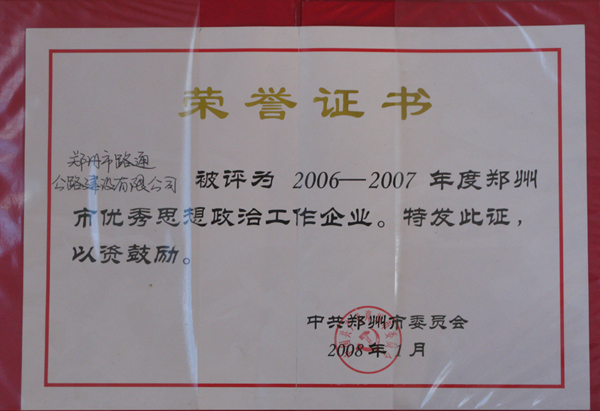 荣誉证书
郑州市路通
公路建设有限公司
被评为 2006—2007 年度郑州
市优秀思想政治工作企业。特发此证，
以资鼓励。
中共郑州市委员会
2008 年 1 月